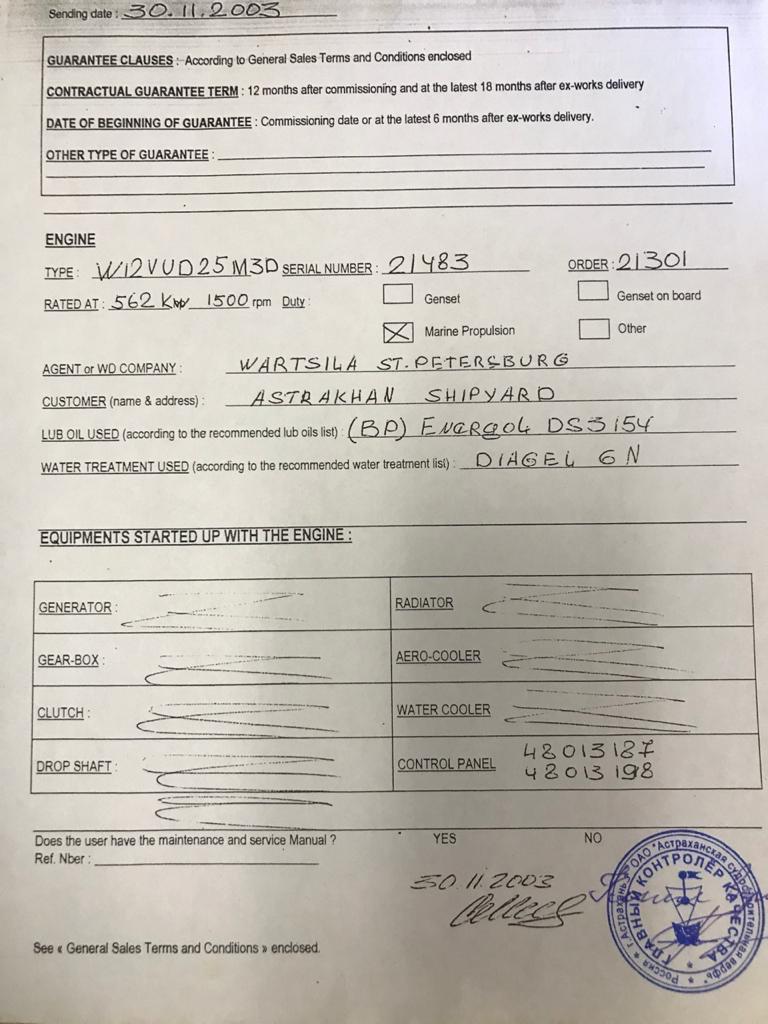 Sending date : 30.11.2003
GUARANTEE CLAUSES : According to General Sales Terms and Conditions enclosed
CONTRACTUAL GUARANTEE TERM : 12 months after commissioning and at the latest 18 months after ex-works delivery
DATE OF BEGINNING OF GUARANTEE : Commissioning date or at the latest 6 months after ex-works delivery.
OTHER TYPE OF GUARANTEE :
ENGINE
TYPE : W12VUD25M3D SERIAL NUMBER : 21483 ORDER : 21301
RATED AT : 562 Kw 1500 rpm Duty : Genset Genset on board
Marine Propulsion Other
AGENT or WD COMPANY : WARTSILA ST.PETERSBURG
CUSTOMER (name & address) : ASTRAKHAN SHIPYARD
LUB OIL USED (according to the recommended lub oils list) : (BP) ENERGOL DS3154
WATER TREATMENT USED (according to the recommended water treatment list) : DIAGEL GN
EQUIPMENTS STARTED UP WITH THE ENGINE :
GENERATOR : RADIATOR
GEAR-BOX : AERO-COOLER
CLUTCH : WATER COOLER
DROP SHAFT : CONTROL PANEL 48013187
48013198
Does the user have the maintenance and service Manual ? YES NO
Ref. Nber :
30.11.2003
See « General Sales Terms and Conditions » enclosed.
Россия * г.Астрахань * ОАО "Астраханская судостроительная верфь" *
ГЛАВНЫЙ КОНТРОЛЁР КАЧЕСТВА